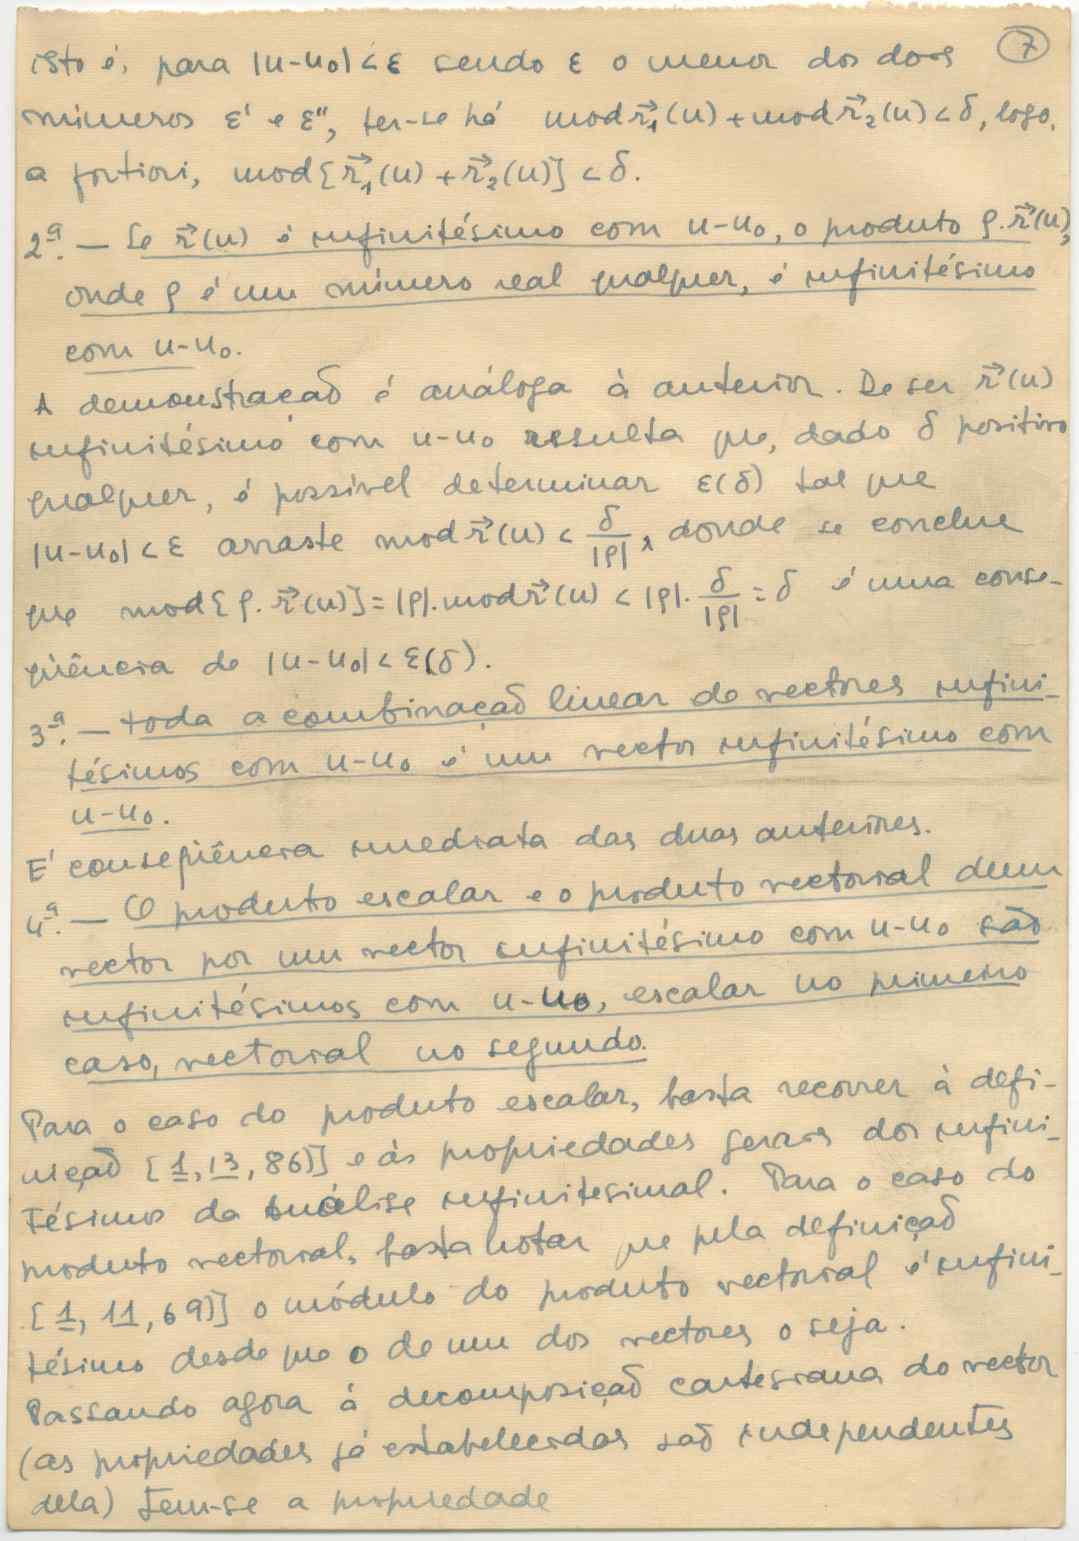 isto é, para |u-u₀| < ε sendo ε o menor dos dois 7
números ε' e ε'', ter-se há mod r⃗₁(u) + mod r⃗₂(u) < δ, logo,
a fortiori, mod [r⃗₁(u) + r⃗₂(u)] < δ.
2ª. — Se r⃗(u) é infinitésimo com u-u₀, o produto ρ.r⃗(u),
onde ρ é um número real qualquer, é infinitésimo
com u-u₀.
A demonstração é análoga à anterior. De ser r⃗(u)
infinitésimo com u-u₀ resulta que, dado δ positivo
qualquer, é possível determinar ε(δ) tal que
|u-u₀| < ε arraste mod r⃗(u) < δ/|ρ|, donde se conclue
que mod [ρ. r⃗(u)] = |ρ|. mod r⃗(u) < |ρ|. δ/|ρ| = δ é uma conse-
qüência de |u-u₀| < ε(δ).
3ª. — toda a combinação linear de vectores infini-
tésimos com u-u₀ é um vector infinitésimo com
u-u₀.
E' conseqüência imediata das duas anteriores.
4ª. — O produto escalar e o produto vectorial dum
vector por um vector infinitésimo com u-u₀ são
infinitésimos com u-u₀, escalar no primeiro
caso, vectorial no segundo.
Para o caso do produto escalar, basta recorrer à defi-
nição [1, 13, 86)] e às propriedades gerais dos infini-
tésimos da análise infinitesimal. Para o caso do
produto vectorial, basta notar que pela definição
[1, 11, 69)] o módulo do produto vectorial é infini-
tésimo desde que o de um dos vectores o seja.
Passando agora à decomposição cartesiana do vector
(as propriedades já estabelecidas são independentes
dela) tem-se a propriedade